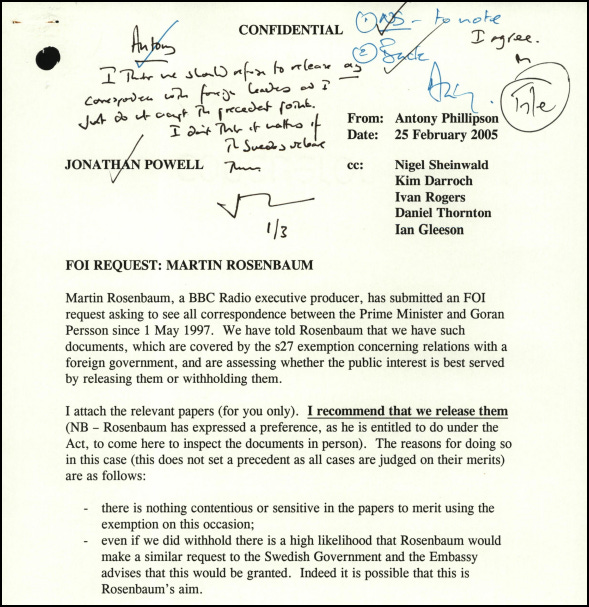 CONFIDENTIAL
① NB - to note
② File
I agree.
Antony
I think we should refuse to release any
correspondence with foreign leaders as I
just do not accept the precedent point.
I don't think it matters if
the Swedes release
them.
1/3
From: Antony Phillipson
Date: 25 February 2005
JONATHAN POWELL
cc: Nigel Sheinwald
Kim Darroch
Ivan Rogers
Daniel Thornton
Ian Gleeson
FOI REQUEST: MARTIN ROSENBAUM
Martin Rosenbaum, a BBC Radio executive producer, has submitted an FOI
request asking to see all correspondence between the Prime Minister and Goran
Persson since 1 May 1997. We have told Rosenbaum that we have such
documents, which are covered by the s27 exemption concerning relations with a
foreign government, and are assessing whether the public interest is best served
by releasing them or withholding them.
I attach the relevant papers (for you only). I recommend that we release them
(NB – Rosenbaum has expressed a preference, as he is entitled to do under the
Act, to come here to inspect the documents in person). The reasons for doing so
in this case (this does not set a precedent as all cases are judged on their merits)
are as follows:
- there is nothing contentious or sensitive in the papers to merit using the
exemption on this occasion;
- even if we did withhold there is a high likelihood that Rosenbaum would
make a similar request to the Swedish Government and the Embassy
advises that this would be granted. Indeed it is possible that this is
Rosenbaum's aim.